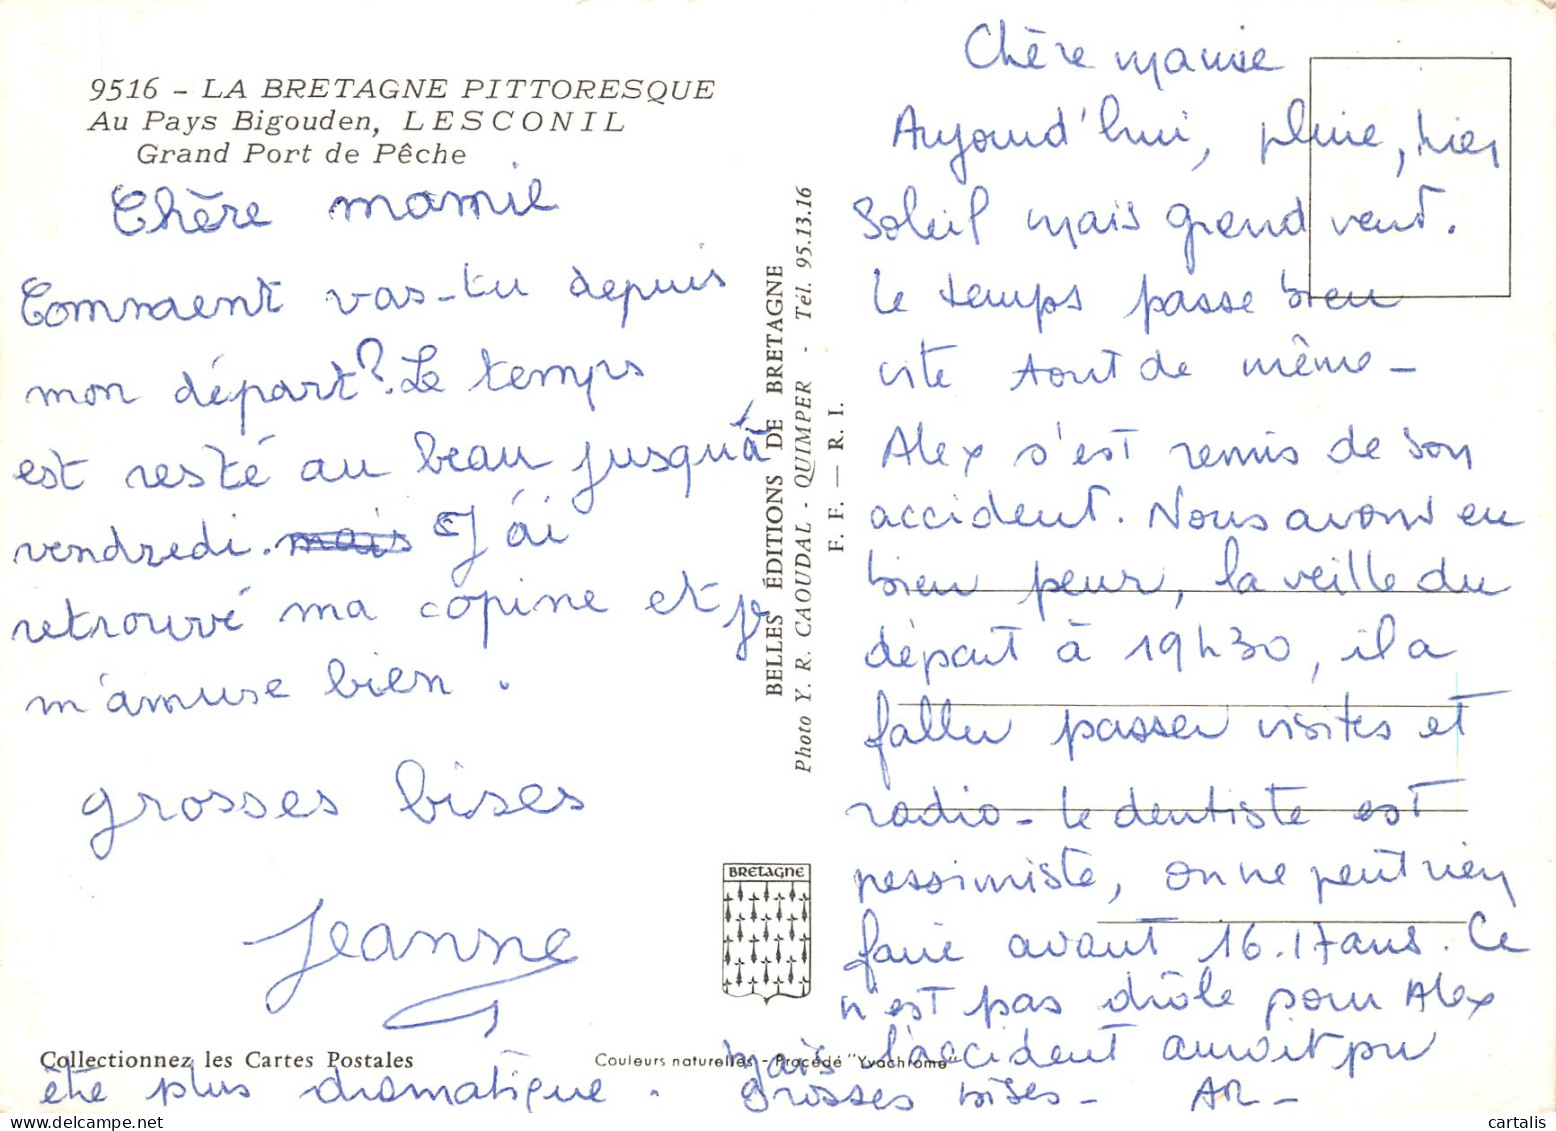 9516 - LA BRETAGNE PITTORESQUE
Au Pays Bigouden, LESCONIL
Grand Port de Pêche
Chère mamie
Comment vas-tu depuis
mon départ? Le temps
est resté au beau jusqu'à
vendredi. mais J'ai
retrouvé ma copine et je
m'amuse bien.
grosses bises
Jeanne
BELLES ÉDITIONS DE BRETAGNE
Photo Y. R. CAOUDAL - QUIMPER - Tél. 95.13.16
F. F. — R. I.
BRETAGNE
Chère mamie
Aujourd'hui, pluie, hier
Soleil mais grand vent.
Le temps passe bien
vite tout de même -
Alex s'est remis de son
accident. Nous avons eu
bien peur, la veille du
départ à 19h30, il a
fallu passer visites et
radio - Le dentiste est
pessimiste, on ne peut rien
faire avant 16.17 ans. Ce
n'est pas drôle pour Alex
mais l'accident auroit pu
être plus dramatique.
grosses bises - AR -
Collectionnez les Cartes Postales
Couleurs naturelles - Procédé "Yvachrome"
cartalis